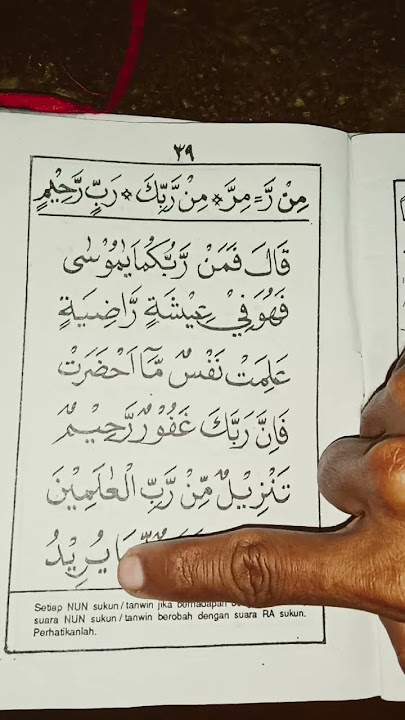 ٣٩
مِنْ رَّ = مِرَّ * مِنْ رَّبِّكَ * رَبٍّ رَّحِيْمٍ
قَالَ فَمَنْ رَّبُّكُمَا يٰمُوْسٰى
فَهُوَ فِيْ عِيْشَةٍ رَّاضِيَةٍ
عَلِمَتْ نَفْسٌ مَّآ اَحْضَرَتْ
فَاِنَّ رَبَّكَ غَفُوْرٌ رَّحِيْمٌ
تَنْزِيْلٌ مِّنْ رَّبِّ الْعٰلَمِيْنَ
يُرِيْدُ
Setiap NUN sukun/tanwin jika berhadapan
suara NUN sukun/tanwin berobah dengan suara RA sukun.
Perhatikanlah.